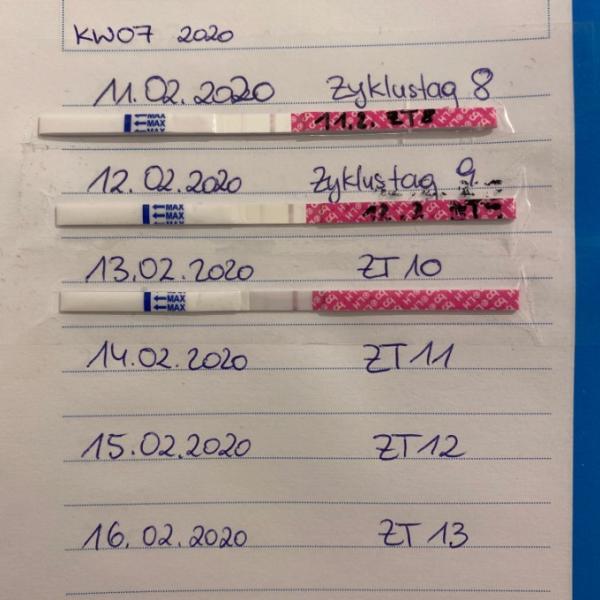 KW07 2020
11.02.2020 Zyklustag 8
MAX
MAX
MAX
11.2. ZT8
12.02.2020 Zyklustag 9
MAX
MAX
MAX
12.2
13.02.2020 ZT 10
MAX
MAX
MAX
14.02.2020 ZT 11
15.02.2020 ZT 12
16.02.2020 ZT 13